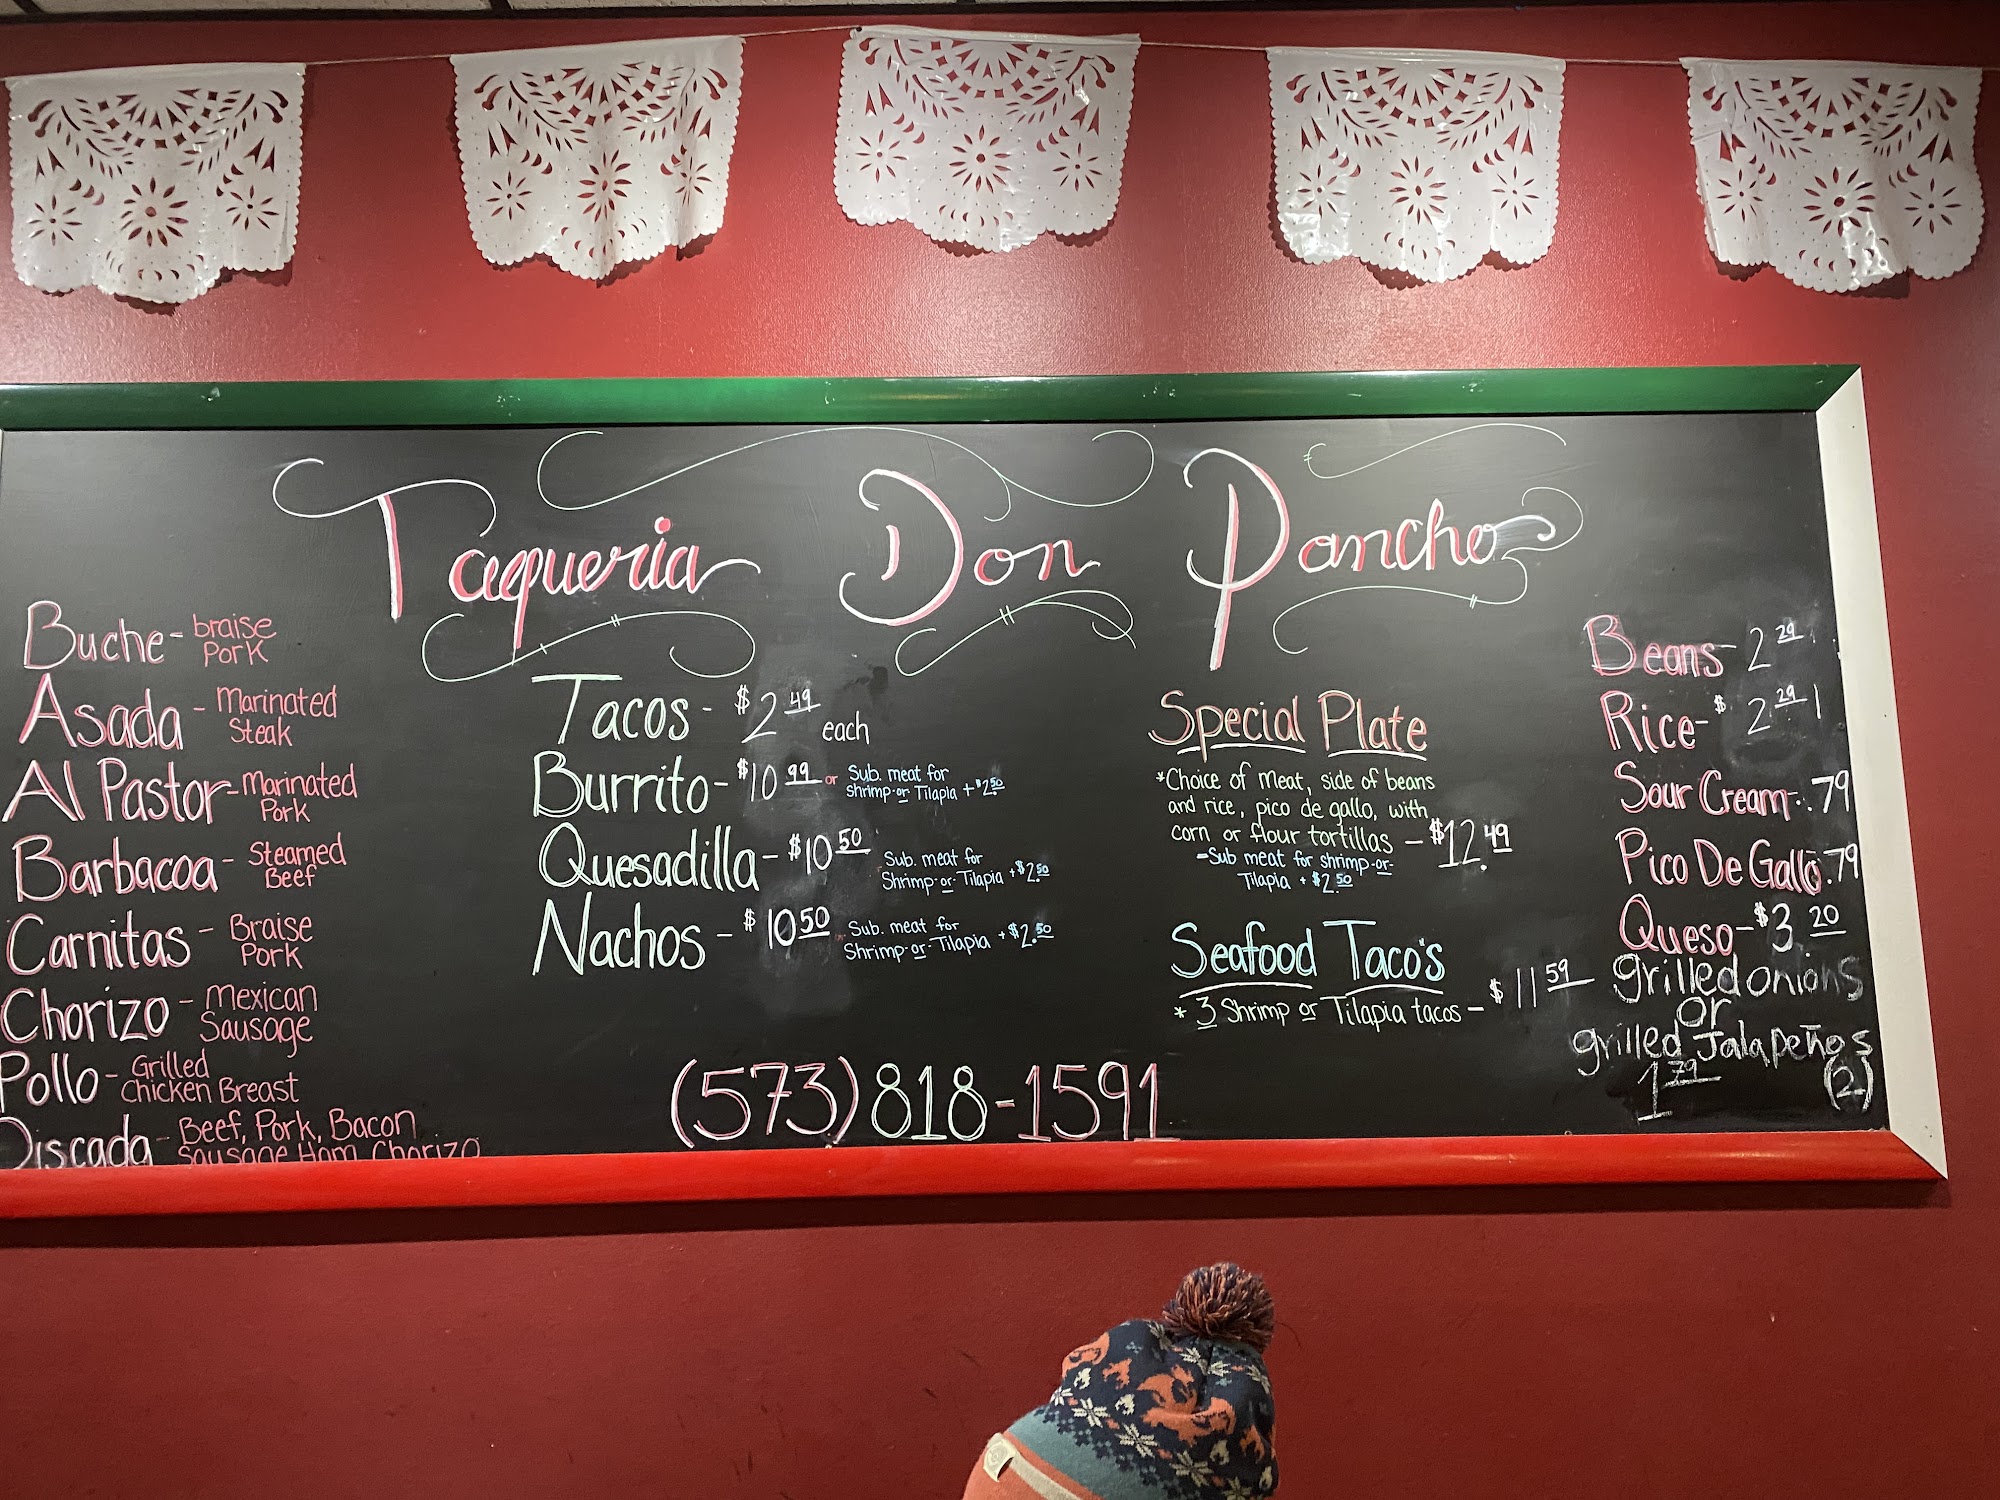 Taqueria Don Pancho
Buche - braise
Pork
Asada - Marinated
Steak
Al Pastor - Marinated
Pork
Barbacoa - Steamed
Beef
Carnitas - Braise
Pork
Chorizo - Mexican
Sausage
Pollo - Grilled
Chicken Breast
Discada - Beef, Pork, Bacon
Sausage Ham Chorizo
Tacos - $2.49 each
Burrito - $10.99 or Sub. meat for
Shrimp -or- Tilapia + $2.50
Quesadilla - $10.50 Sub. meat for
Shrimp -or- Tilapia + $2.50
Nachos - $10.50 Sub. meat for
Shrimp -or- Tilapia + $2.50
(573) 818-1591
Special Plate
*Choice of Meat, side of beans
and rice, pico de gallo, with
corn or flour tortillas - $12.49
- Sub meat for shrimp -or-
Tilapia + $2.50
Seafood Taco's
* 3 Shrimp or Tilapia tacos - $11.59
Beans - 2.29
Rice - $2.29
Sour Cream - .79
Pico De Gallo .79
Queso - $3.20
grilled onions
or
grilled Jalapeños
1.79 (2)